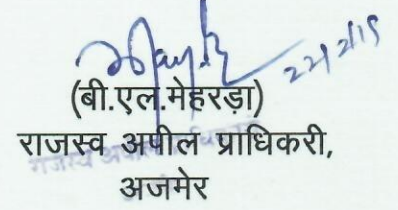 22/2/15
(बी.एल.मेहरड़ा)
राजस्व अपील प्राधिकरी,
अजमेर